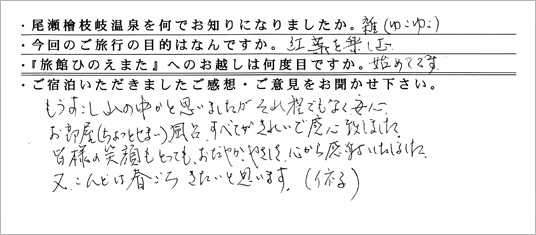 ・尾瀬檜枝岐温泉を何でお知りになりましたか。雑(ゆこゆこ)
・今回のご旅行の目的はなんですか。紅葉を楽しむ
・『旅館ひのえまた』へのお越しは何度目ですか。始めてです
・ご宿泊いただきましたご感想・ご意見をお聞かせ下さい。
もうすこし山の中かと思いましたがそれ程でもなく安心に
お部屋(ちょっとせまい)風呂、すべてがきれいで感心致しました
皆様の笑顔もとっても、おだやかやさしく、心から感謝いたしました
又、こんどは春ごろきたいと思います。